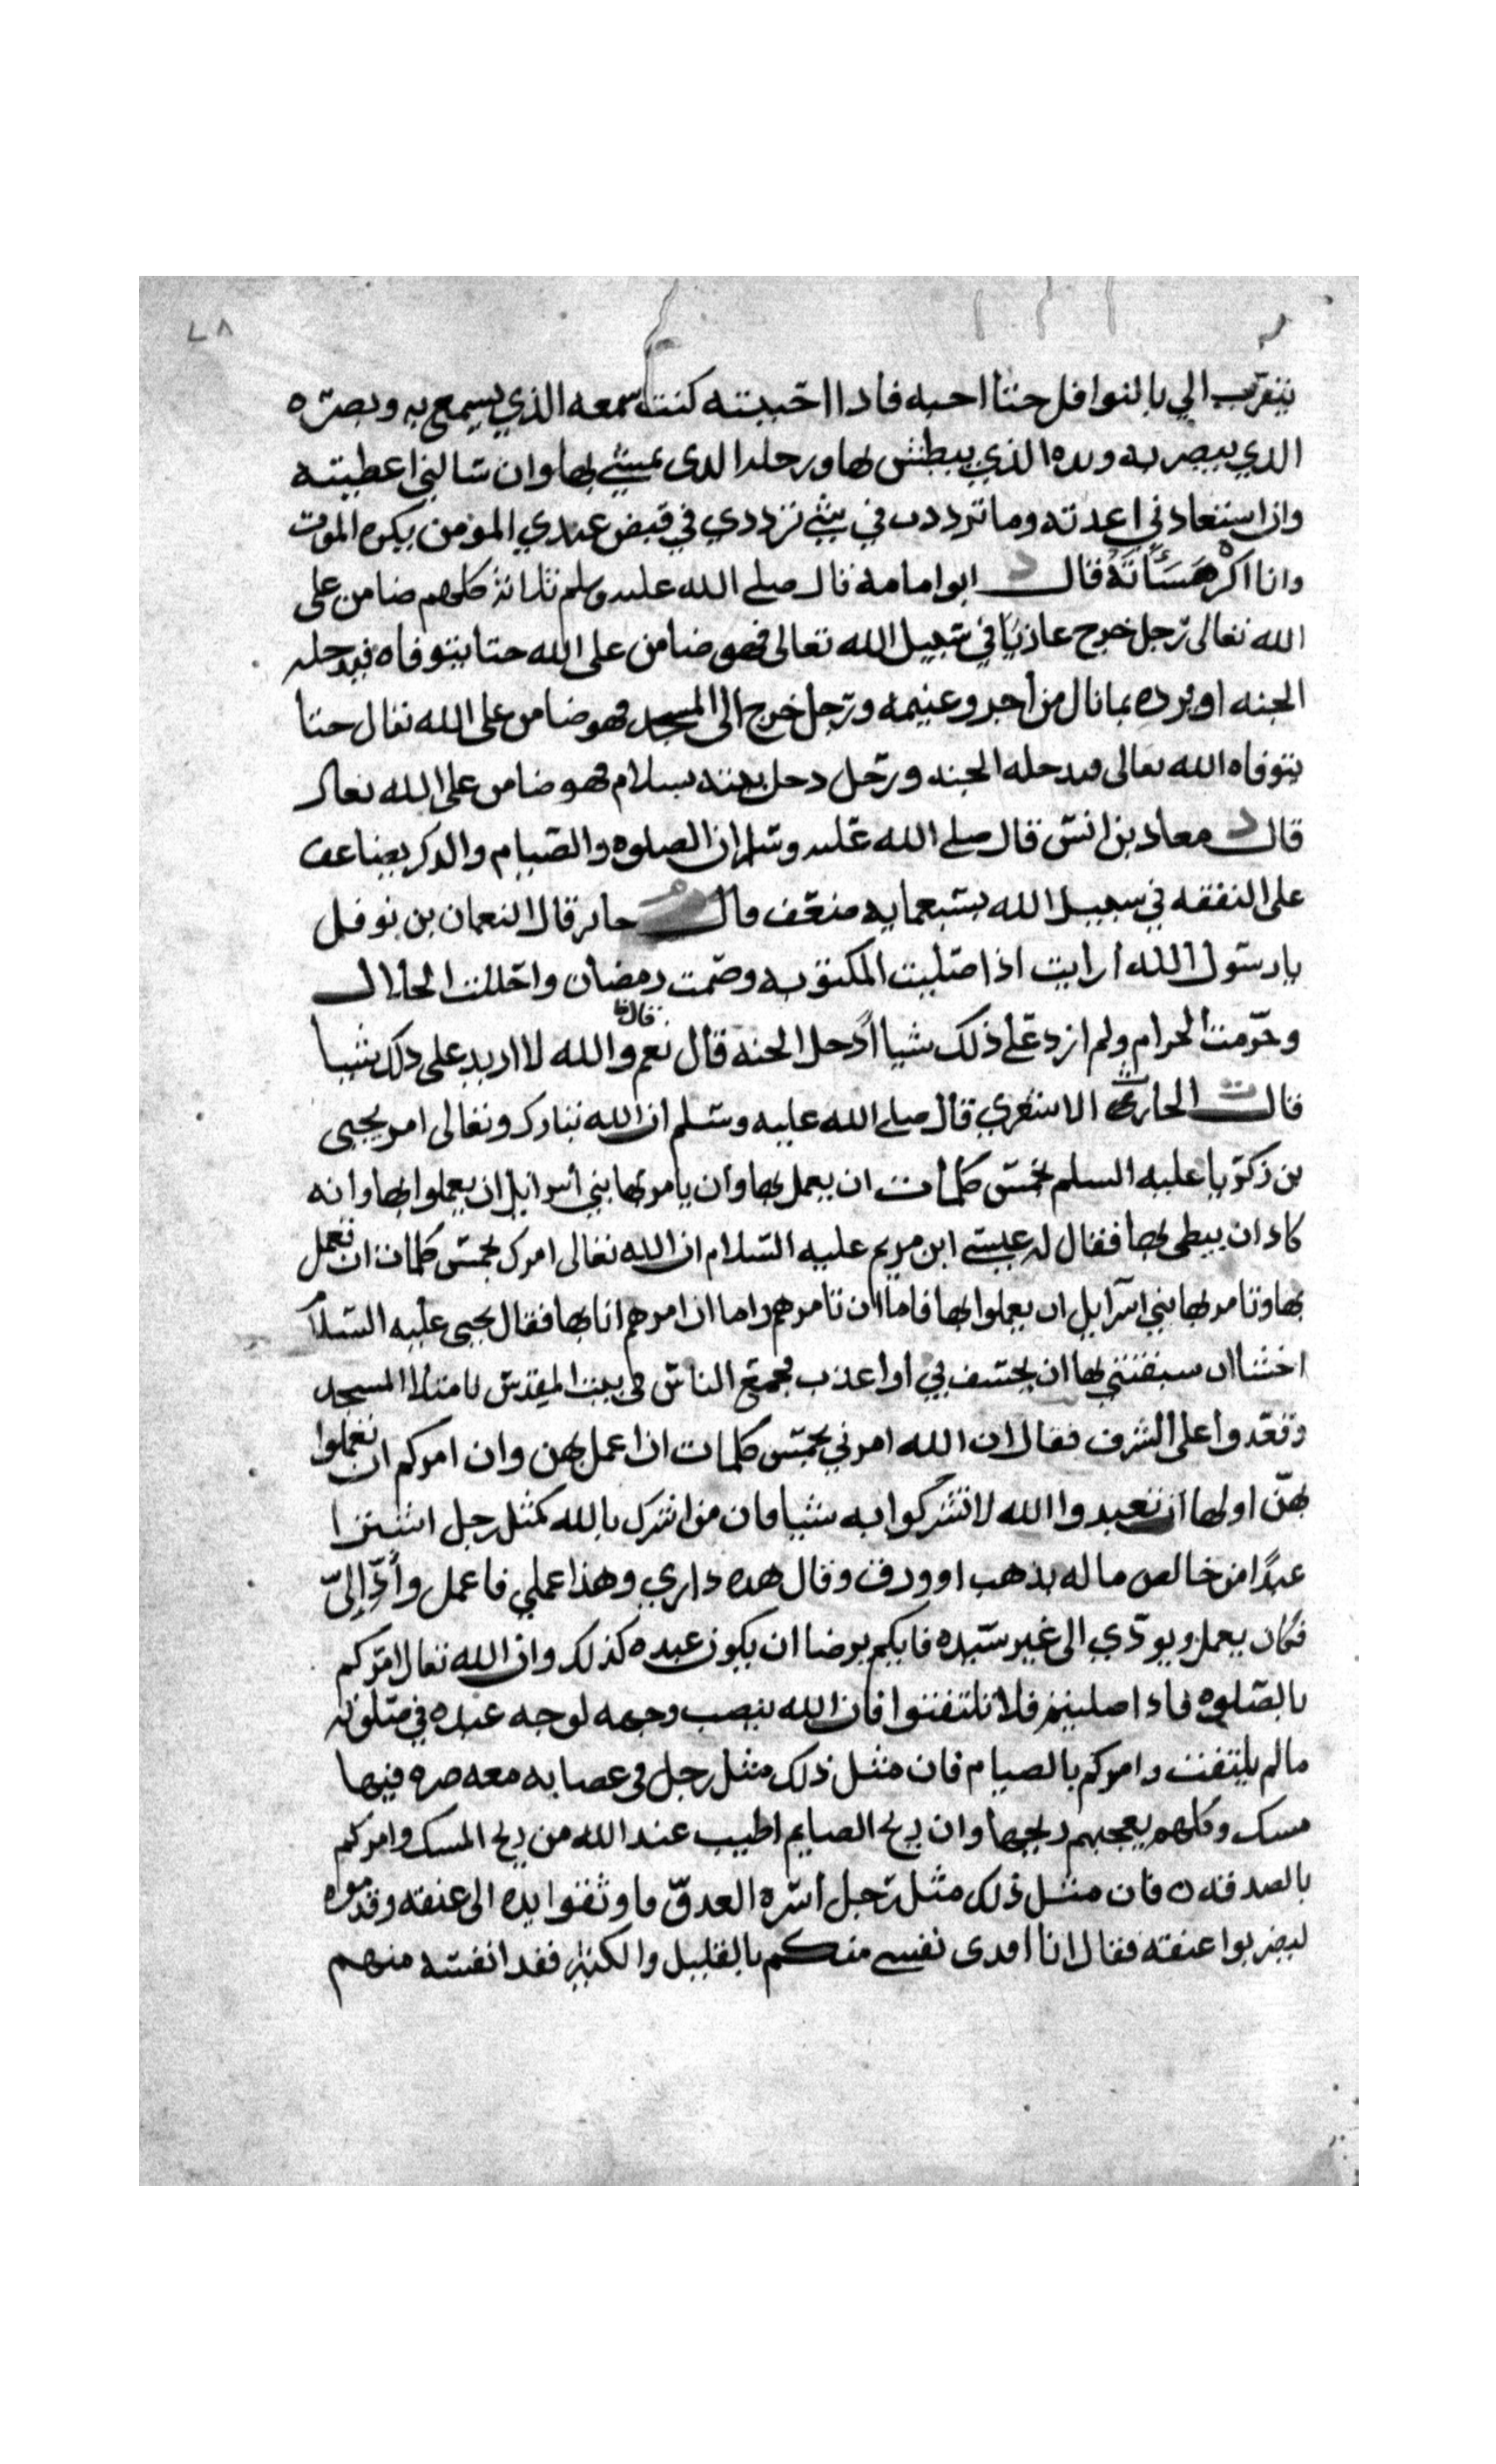 ٢٨
يتقرب الي بالنوافل حتا احبه فاذا احببته كنت سمعه الذي يسمع به وبصره
الذي يبصر به ويده الذي يبطش بها ورجله الذى يمشي بها وان سالني اعطيته
وان استعاذني اعذته وما ترددت في شي ترددي في قبض عبدي المومن يكره الموت
وانا اكره مساته قال د ابو امامه قال صلى الله عليه وسلم ثلاثة كلهم ضامن على
الله تعالى رجل خرج غازيا في سبيل الله تعالى فهو ضامن على الله حتا يتوفاه فيدخله
الجنه او يرده بما نال من اجر وغنيمه ورجل خرج الى المسجد فهو ضامن على الله تعال حتا
يتوفاه الله تعالى فيدخله الجنه ورجل دخل بيته بسلام فهو ضامن على الله تعال
قال د معاذ بن انس قال صلى الله عليه وسلم ان الصلوه والصيام والذكر يضاعف
على النفقه في سبيل الله بسبعمايه ضعف قال م جابر قال النعمان بن نوفل
يا رسول الله ارايت اذا صليت المكتوبه وصمت رمضان واحللت الحلال
وحرمت الحرام ولم ازد على ذلك شيا اادخل الجنه قال نعم قال والله لا ازيد على ذلك شيا
قال ت الحارث الاشعري قال صلى الله عليه وسلم ان الله تبارك وتعالى امر يحيى
بن زكريا عليه السلم بخمس كلمات ان يعمل بها وان يامر بها بني اسرايل ان يعملوا بها وانه
كاد ان يبطى بها فقال له عيسى ابن مريم عليه السلام ان الله تعالى امرك بخمس كلمات ان تعمل
بها وتامر بها بني اسرايل ان يعملوا بها فاما ان تامرهم واما ان امرهم انا بها فقال يحيى عليه السلام
اخشا ان سبقتني بها ان يخسف بي او اعذب فجمع الناس في بيت المقدس فامتلا المسجد
وقعدوا على الشرف فقال ان الله امرني بخمس كلمات ان اعمل بهن وان امركم ان تعملوا
بهن اولها ان تعبدوا الله لا تشركوا به شيا فان من اشرك بالله كمثل رجل اشترا
عبدا من خالص ماله بذهب او ورق وقال هذه داري وهذا عملي فاعمل وأدّ إليّ
فكان يعمل ويودي الى غير سيده فايكم يرضا ان يكون عبده كذلك وان الله تعال امركم
بالصلوه فاذا صليتم فلا تلتفتوا فان الله ينصب وجهه لوجه عبده في صلوته
ما لم يلتفت وامركم بالصيام فان مثل ذلك مثل رجل في عصابه معه صره فيها
مسك وكلهم يعجبهم ريحها وان ريح الصايم اطيب عند الله من ريح المسك وامركم
بالصدقه فان مثل ذلك مثل رجل اسره العدو فاوثقوا يده الى عنقه وقدموه
ليضربوا عنقه فقال انا افدى نفسي منكم بالقليل والكثير ففدا نفسه منهم